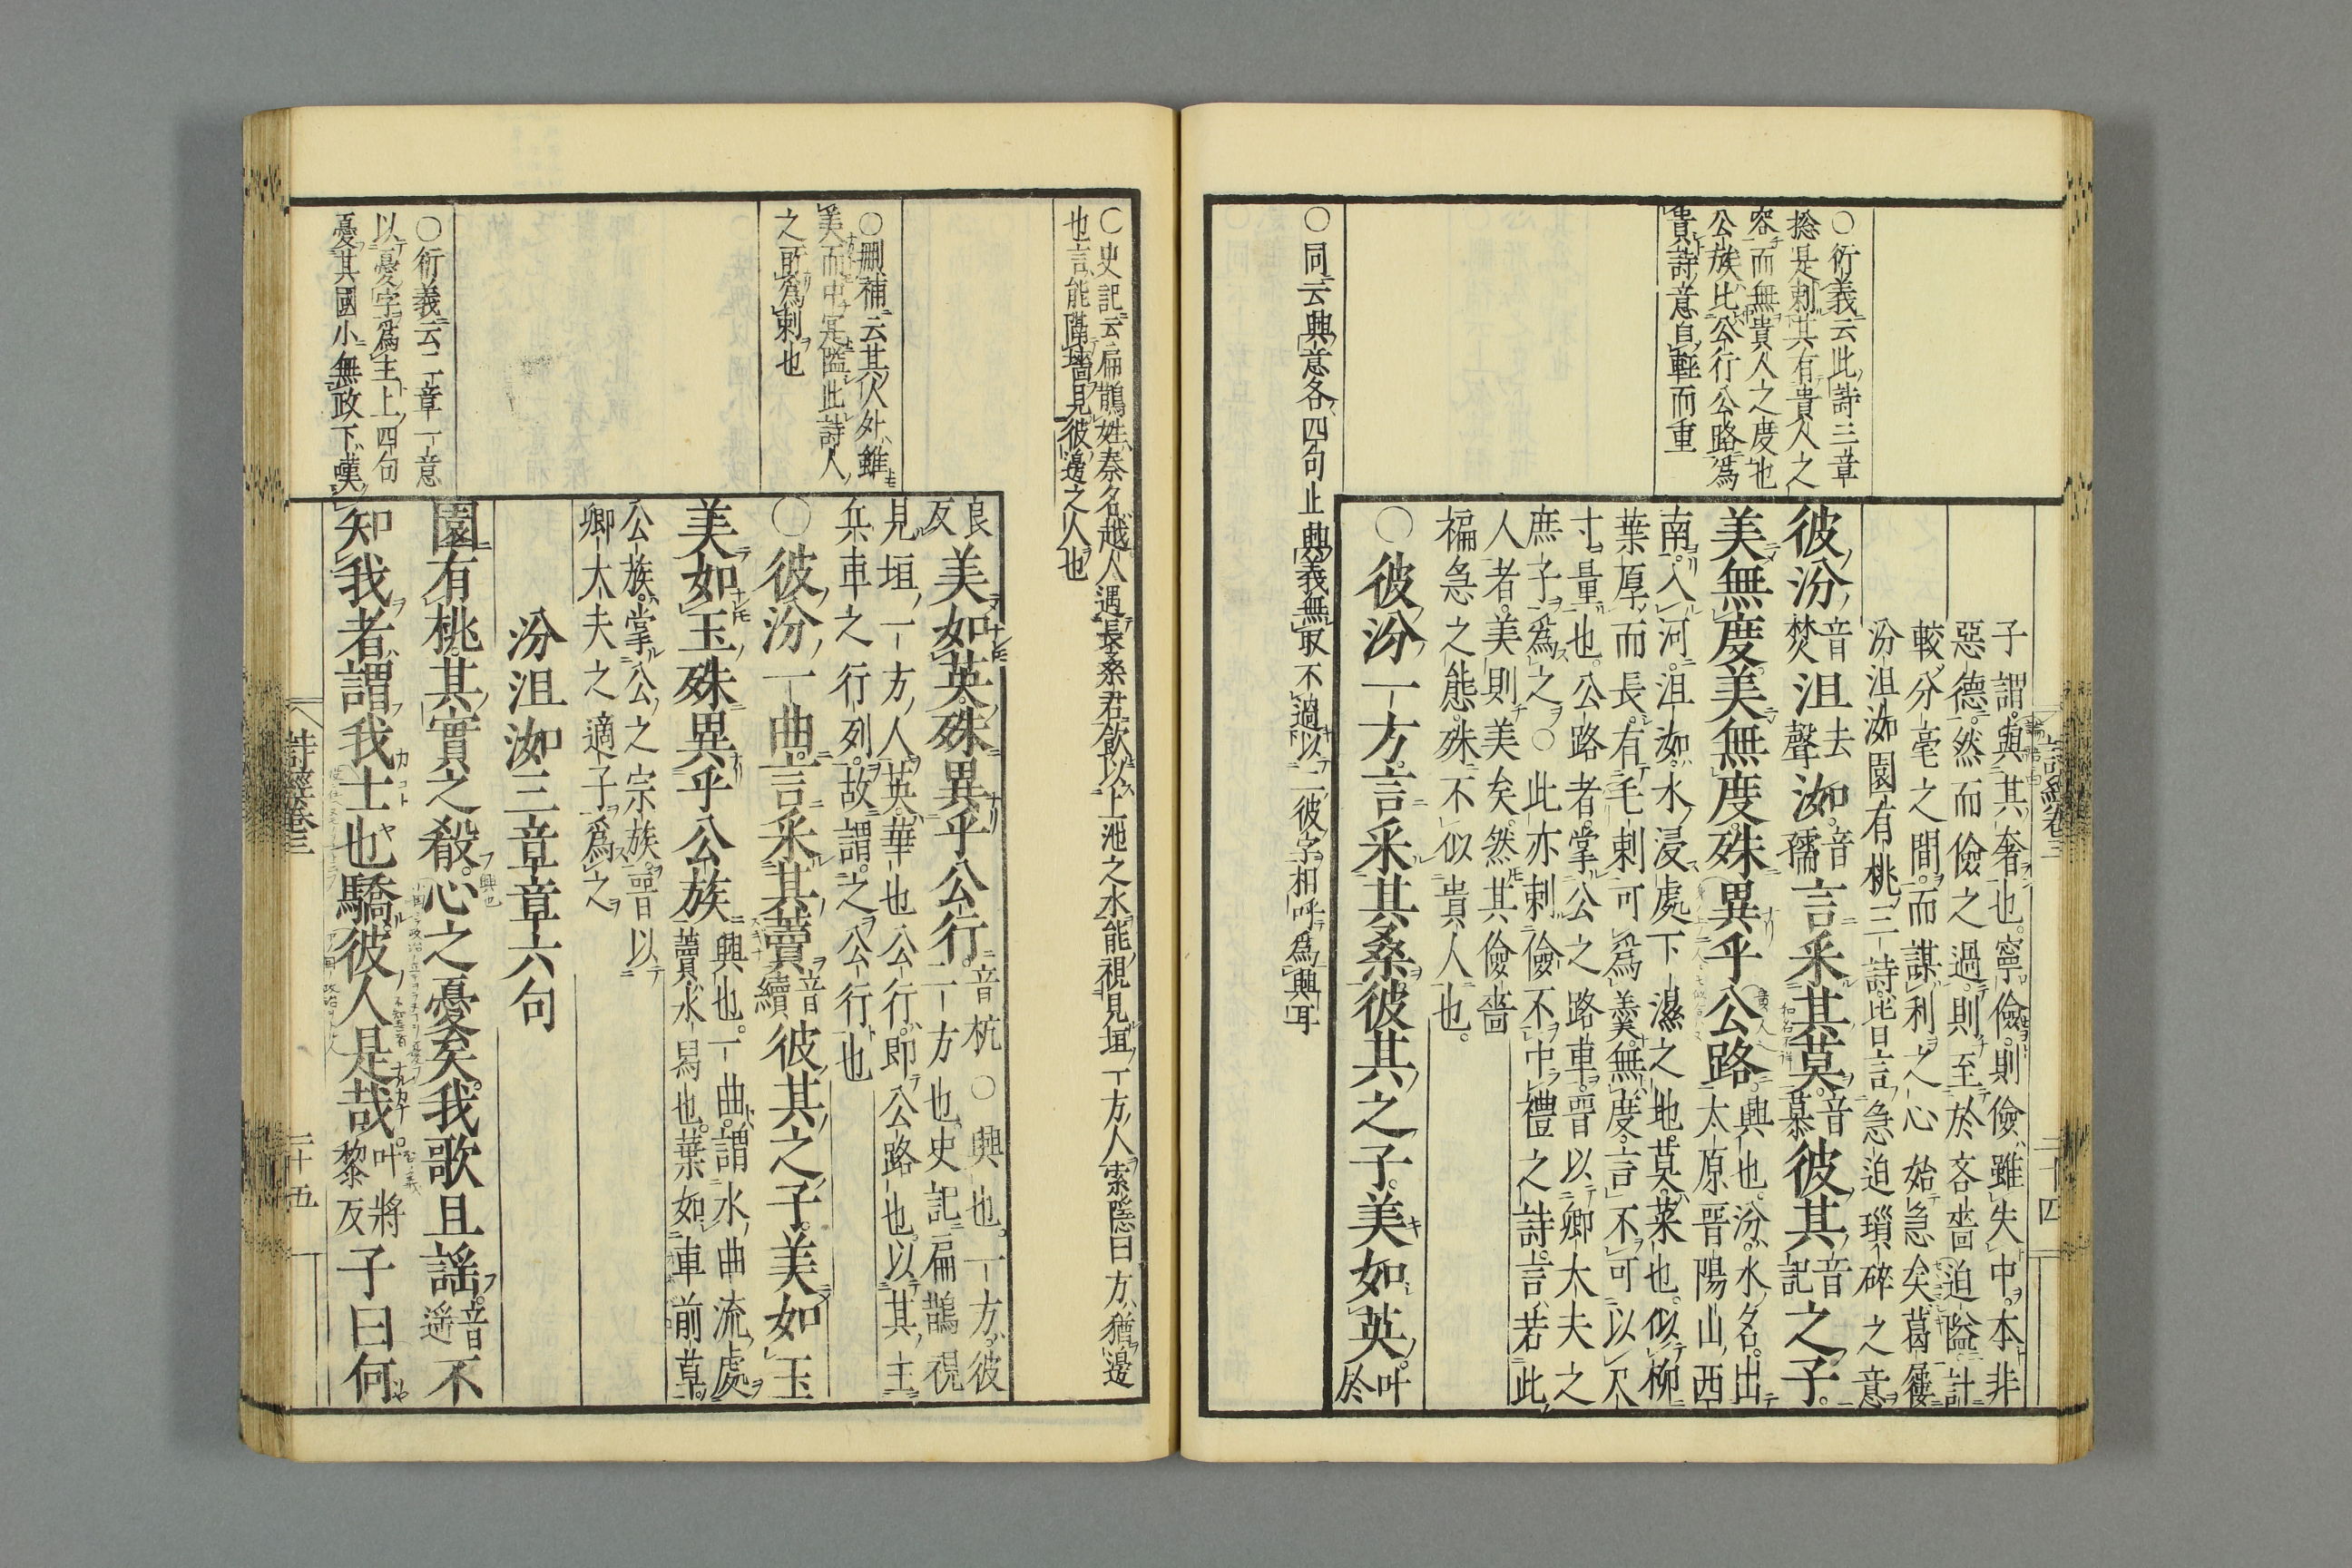 詩經卷三
二十四
○衍義云此詩三章
捴是刺其有貴人之
容而無貴人之度也
公族比公行公路爲
貴詩意自輕而重
○同云興意各四句止興義無取不過以二彼字相呼爲興耳
子謂與其奢也寧儉則儉雖失中本非
惡德然而儉之過則至於吝嗇迫隘計
較分毫之間而謀利之心始急矣葛屨
汾沮洳園有桃三詩皆言急迫瑣碎之意
彼汾音焚沮去聲洳音孺言采其莫音慕彼其音記之子
美無度美無度殊異乎公路興也汾水名出太原晉陽山西
南入河沮洳水浸處下濕之地莫菜也似柳
葉厚而長有毛刺可爲羹無度言不可以尺
寸量也公路者掌公之路車晉以卿大夫之
庶子爲之○此亦刺儉不中禮之詩言若此
人者美則美矣然其儉嗇
褊急之態殊不似貴人也
○彼汾一方言采其桑彼其之子美如英叶於
○史記云扁鵲姓秦名越人遇長桑君飲以上池之水能視見垣一方人索隱曰方猶邊
也言能隔墻見彼邊之人也
○刪補云其人外雖
美而中寔隘此詩人
之所爲刺也
○衍義云二章一意
以憂字爲主上四句
憂其國小無政下嘆
良反美如英殊異乎公行音杭○興也一方彼
一方也史記扁鵲視
見垣一方人英華也公行即公路也以其主
兵車之行列故謂之公行也
○彼汾一曲言采其藚音續彼其之子美如玉
美如玉殊異乎公族興也一曲謂水曲流處
藚水舄也葉如車前草
公族掌公之宗族晉以
卿大夫之適子爲之
汾沮洳三章章六句
園有桃其實之殽心之憂矣我歌且謠音遥不
知我者謂我士也驕彼人是哉叶將黎反子曰何
詩經卷三
二十五